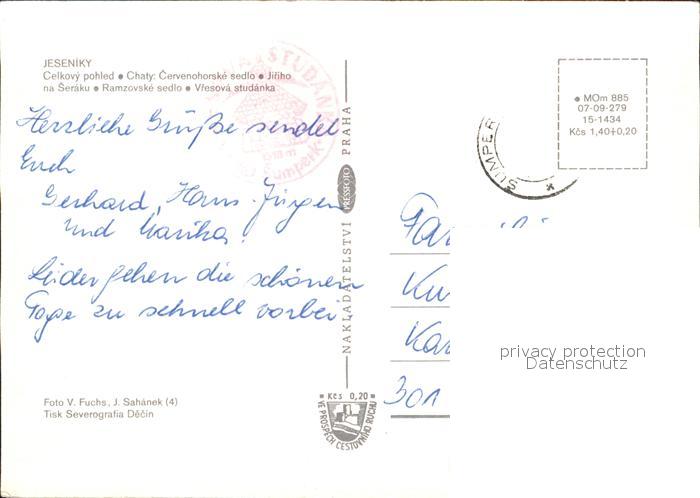 JESENÍKY
Celkový pohled ● Chaty: Červenohorské sedlo ● Jiřího
na Šeráku ● Ramzovské sedlo ● Vřesová studánka
Herzliche Grüße sendet
Euch
Gerhard, Hans-Jürgen
und Marika!
Leider gehen die schönen
Tage zu schnell vorbei
Foto V. Fuchs, J. Sahánek (4)
Tisk Severografia Děčín
NAKLADATELSTVÍ PRESSFOTO PRAHA
Kčs 0,20
VE PROSPĚCH CESTOVNÍHO RUCHU
● MOm 885
07-09-279
15-1434
Kčs 1,40+0,20
ŠUMPER
Fa
Ku
Ka
301
privacy protection
Datenschutz